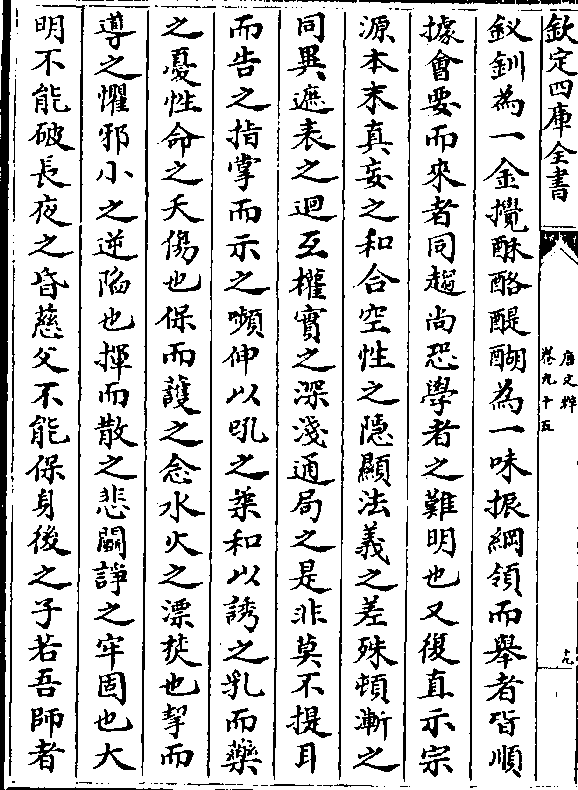 欽定四庫全書
唐文粹
卷九十五
十九
釵釧為一金攪酥酪醍醐為一味振綱領而舉者皆順
據會要而來者同趨尚恐學者之難明也又復直示宗
源本末真妄之和合空性之隱顯法義之差殊頓漸之
同異遮表之迴互權實之深淺通局之是非莫不提耳
而告之指掌而示之嚬伸以吼之柔和以誘之乳而藥
之憂性命之夭傷也保而護之念水火之漂焚也挈而
導之懼邪小之逆陷也揮而散之悲鬭諍之牢固也大
明不能破長夜之昏慈父不能保身後之子若吾師者